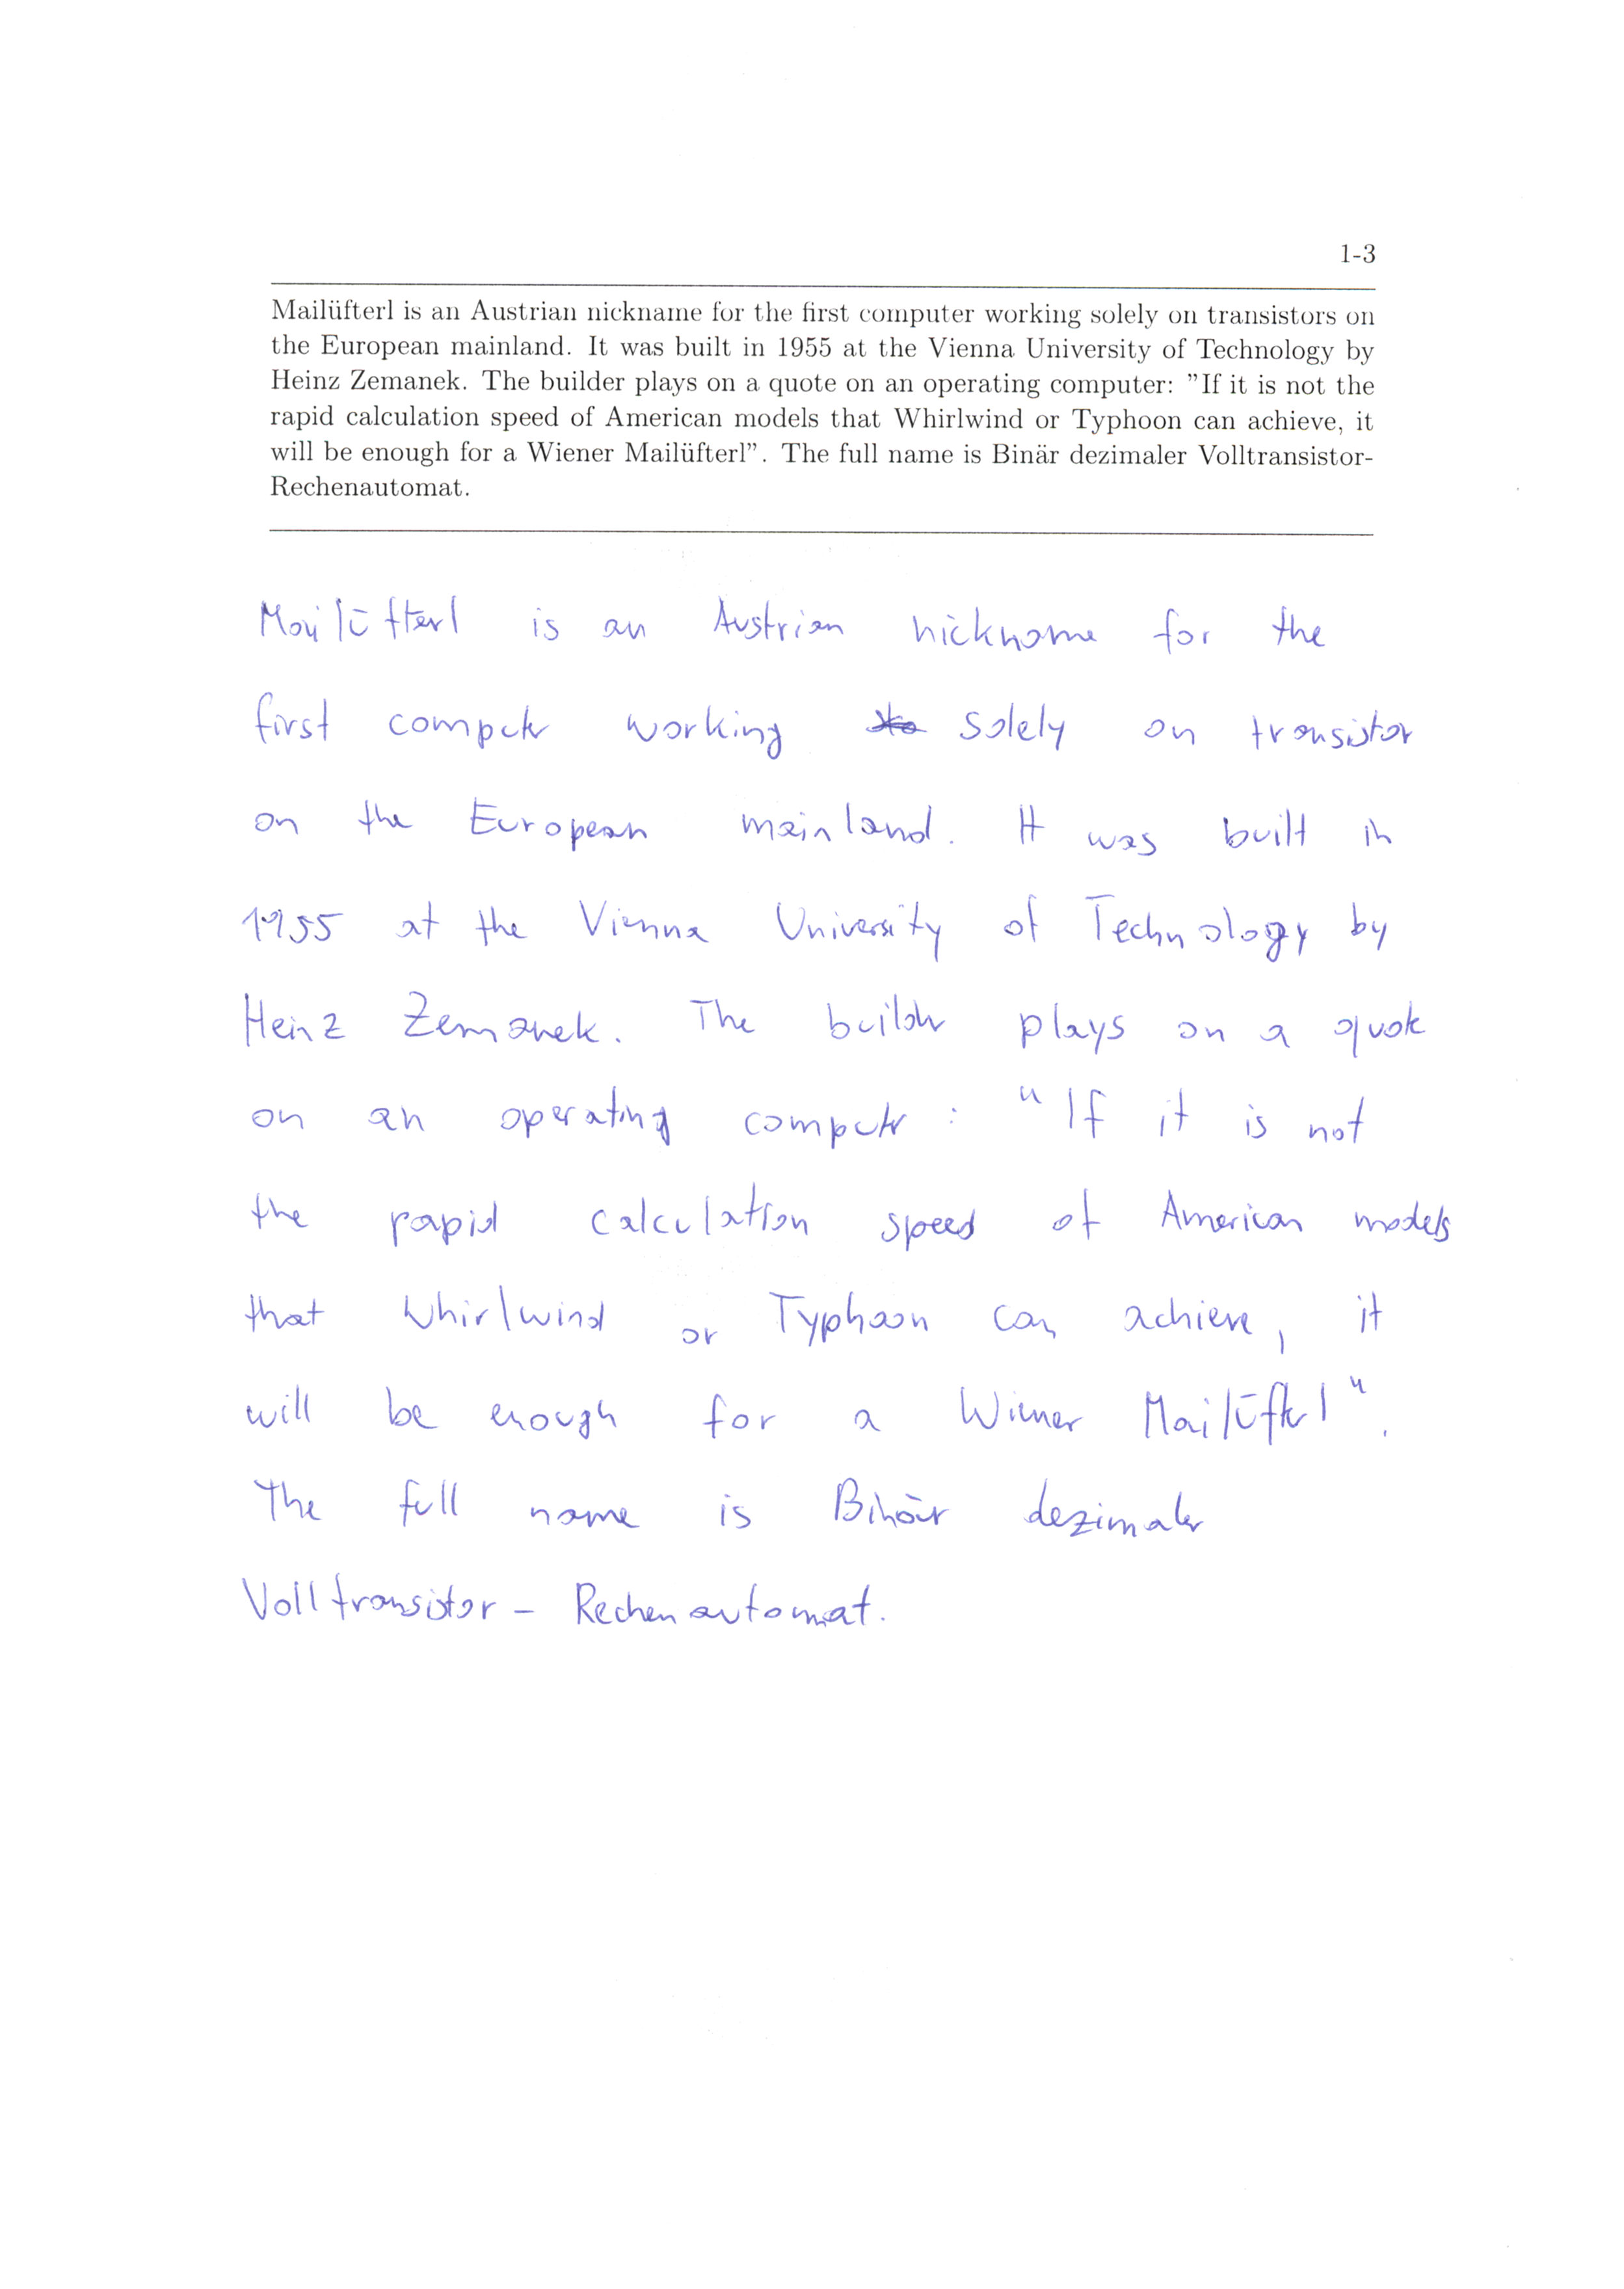 1-3
Mailüfterl is an Austrian nickname for the first computer working solely on transistors on
the European mainland. It was built in 1955 at the Vienna University of Technology by
Heinz Zemanek. The builder plays on a quote on an operating computer: "If it is not the
rapid calculation speed of American models that Whirlwind or Typhoon can achieve, it
will be enough for a Wiener Mailüfterl". The full name is Binär dezimaler Volltransistor-
Rechenautomat.
Mailüfterl is an Austrian nickname for the
first computer working solely on transistor
on the European mainland. It was built in
1955 at the Vienna University of Technology by
Heinz Zemanek. The builder plays on a quote
on an operating computer : "If it is not
the rapid calculation speed of American models
that Whirlwind or Typhoon can achieve, it
will be enough for a Wiener Mailüfterl".
The full name is Binär dezimaler
Volltransistor - Rechenautomat.